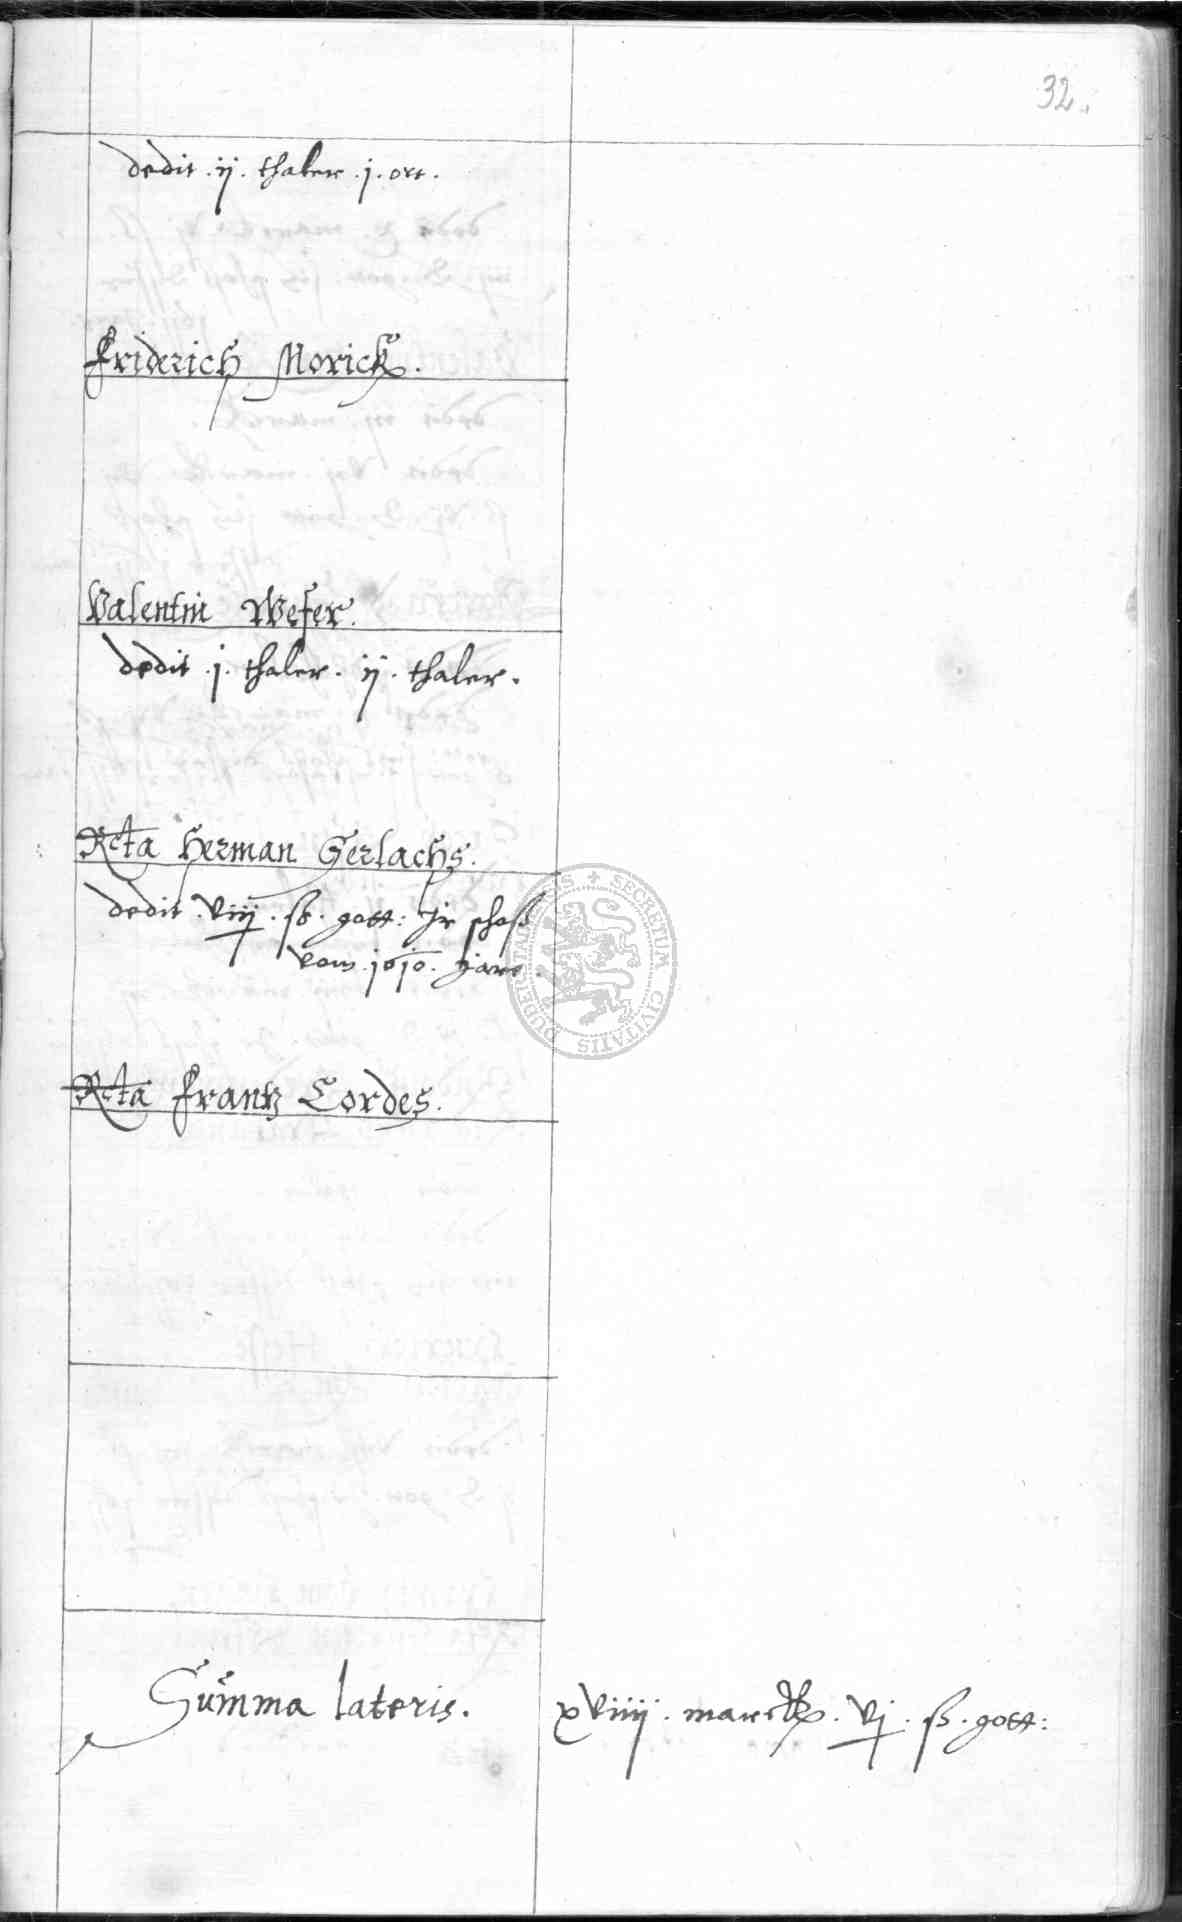 32.
dedit .ij. thaler .j. ort.
Friderich Morick.
Valentin Wefer.
dedit .j. thaler. ij. thaler.
Rcta Herman Gerlachs.
dedit .viij. ß. gott: jr schoß
vom .1610. jare.
Rcta Frantz Cordes.
Summa lateris. xviiij. marck. vj. ß. gott:
SECRETUM CIVITATIS DUDERSTADENSIS